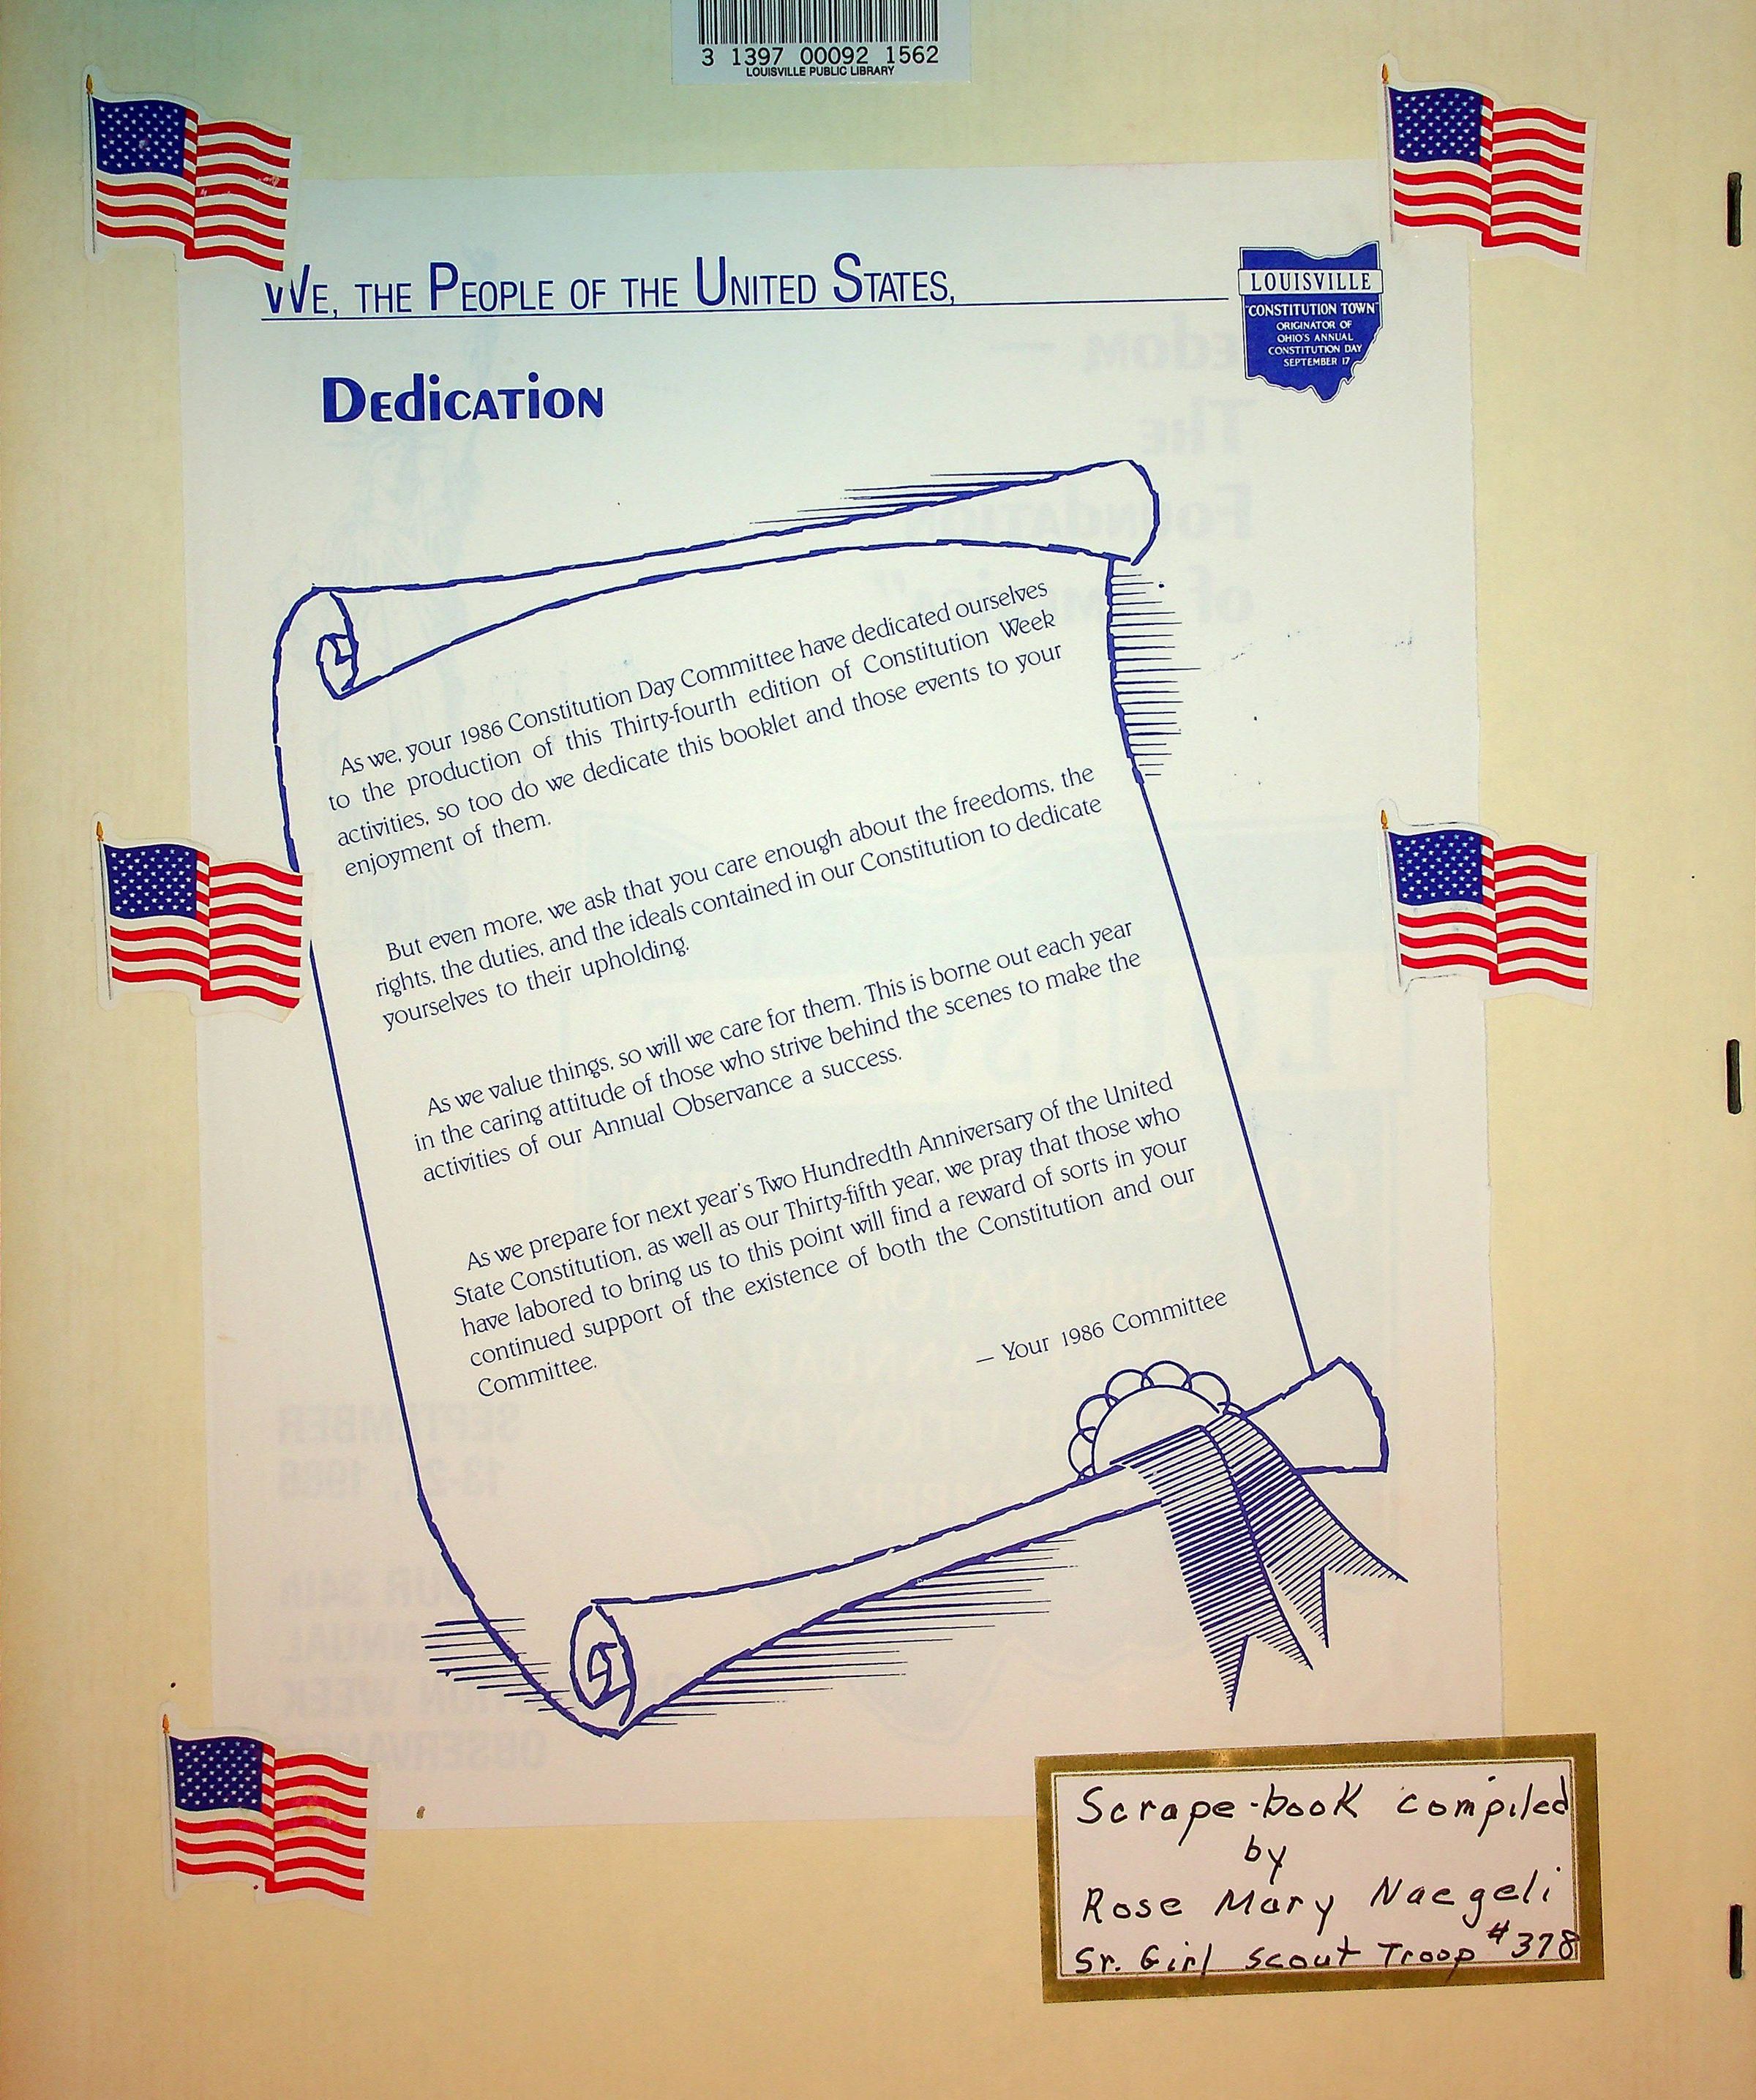 3 1397 00092 1562
LOUISVILLE PUBLIC LIBRARY
WE, THE PEOPLE OF THE UNITED STATES,
LOUISVILLE
"CONSTITUTION TOWN"
ORIGINATOR OF
OHIO'S ANNUAL
CONSTITUTION DAY
SEPTEMBER 17
DEdicATiON
As we, your 1986 Constitution Day Committee have dedicated ourselves
to the production of this Thirty-fourth edition of Constitution Week
activities, so too do we dedicate this booklet and those events to your
enjoyment of them.
But even more, we ask that you care enough about the freedoms, the
rights, the duties, and the ideals contained in our Constitution to dedicate
yourselves to their upholding.
As we value things, so will we care for them. This is borne out each year
in the caring attitude of those who strive behind the scenes to make the
activities of our Annual Observance a success.
As we prepare for next year's Two Hundredth Anniversary of the United
State Constitution, as well as our Thirty-fifth year, we pray that those who
have labored to bring us to this point will find a reward of sorts in your
continued support of the existence of both the Constitution and our
Committee.
— Your 1986 Committee
Scrape-book compiled
by
Rose Mary Naegeli
Sr. Girl Scout Troop #378